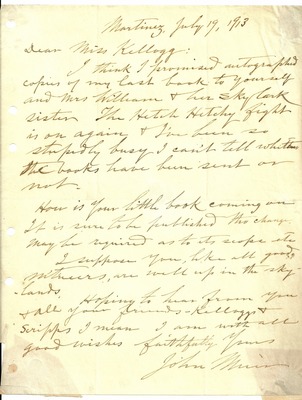 Martinez, July 19, 1913
Dear Miss Kellogg:
I think I promised autographed
copies of my last book to yourself
and Mrs William & her Skylark
sister. The Hetch Hetchy fight
is on again & I've been so
stupidly busy I can't tell whether
the books have been sent or
not.
How is your little book coming on
It is sure to be published tho change
may be required as to its scope etc
I suppose you, like all good
mtneers, are well up in the sky
lands.
Hoping to hear from you
& all your friends - Kelloggs &
Scripps I mean I am with all
good wishes faithfully Yours
John Muir